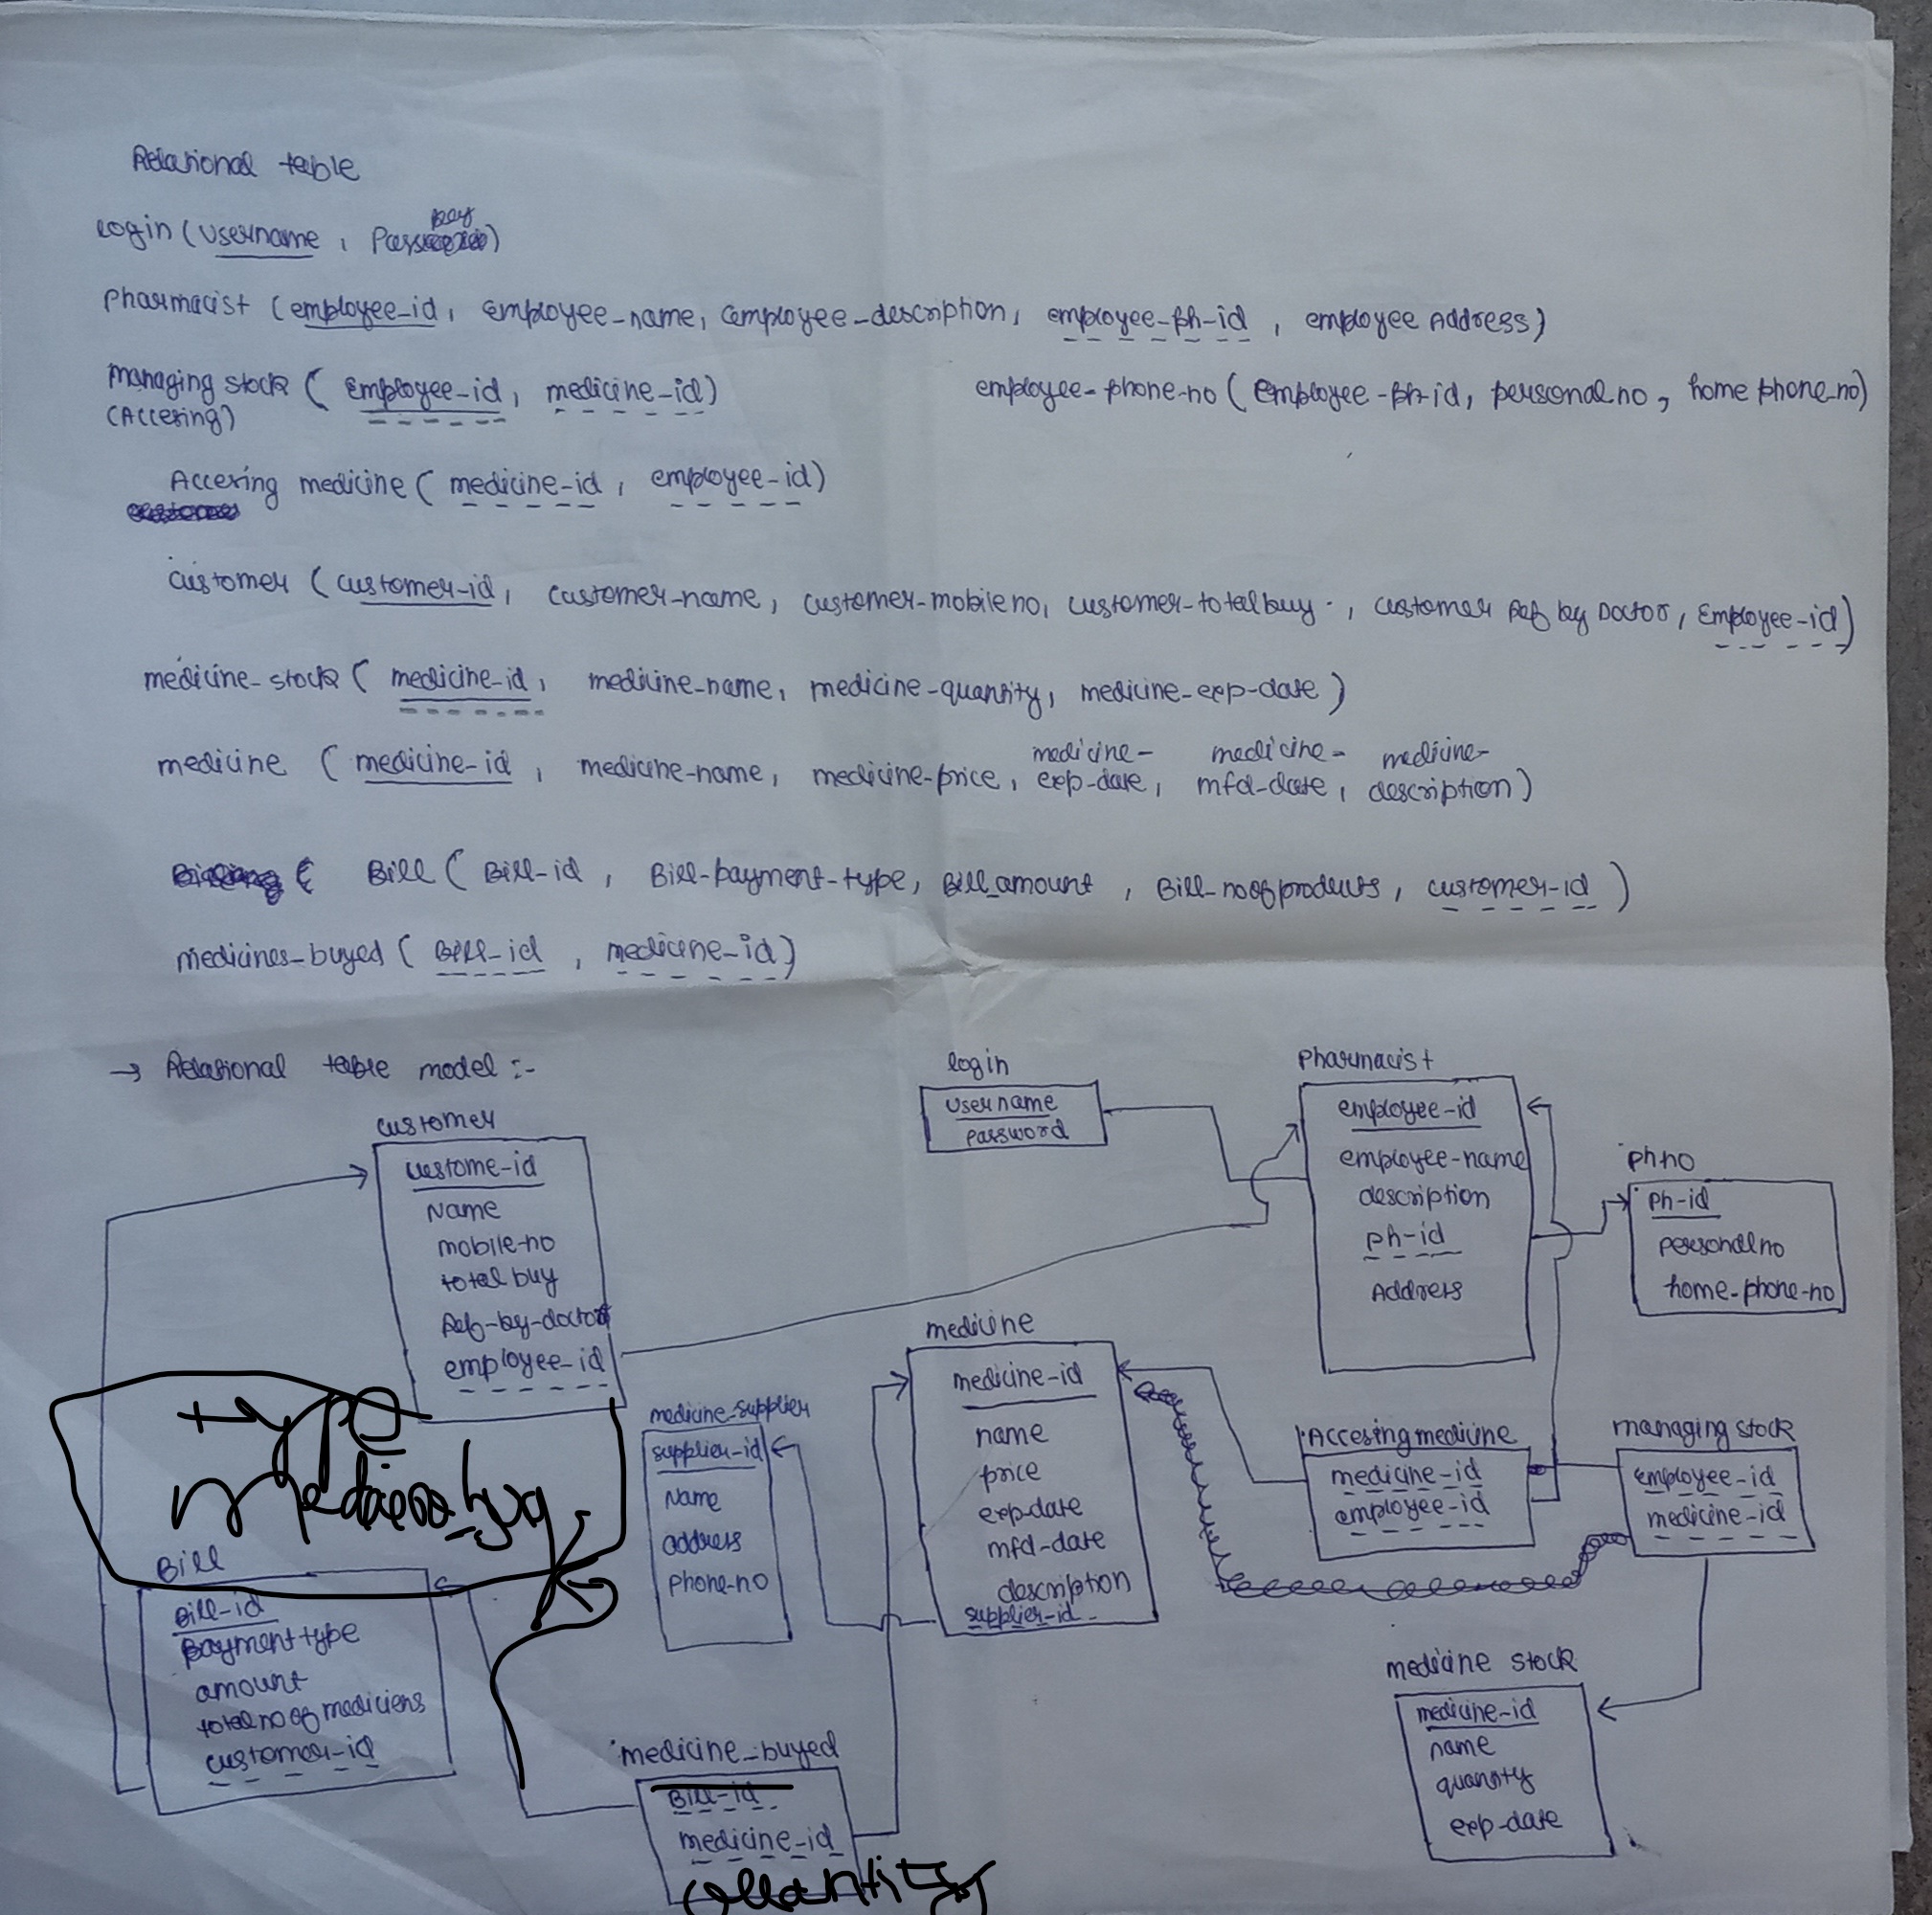 Relational table
login (username, Pass key)
Pharmacist (employee_id, employee_name, employee_description, employee_ph_id, employee Address)
managing stock ( Employee_id, medicine_id)
(Accering)
employee_phone_no (Employee-ph-id, personal no, home phone_no)
Accering medicine ( medicine-id, employee-id)
customer (customer-id, customer-name, customer-mobile no, customer-total buy, customer Ref by Doctor, Employee-id)
medicine_stock ( medicine-id, medicine-name, medicine-quantity, medicine_exp-date )
medicine ( medicine-id, medicine-name, medicine-price, medicine-exp-date, medicine-mfd-date, medicine-description)
Bill ( Bill-id, Bill-payment-type, Bill_amount, Bill-noofproducts, customer-id )
medicines_buyed ( Bill-id, medicine_id)
→ Relational table model :-
login
username
password
Pharmacist
employee-id
employee-name
description
ph-id
Address
ph no
Ph-id
personal no
home-phone-no
customer
custome-id
Name
mobile-no
total buy
Ref-by-doctor
employee_id
medicine
medicine-id
name
price
exp-date
mfd-date
description
supplier-id
medicine_supplier
supplier-id
Name
address
Phone-no
Accesing medicine
medicine_id
employee-id
managing stock
employee-id
medicine_id
type
Bill
Bill-id
payment type
amount
total no of mediciens
customer-id
medicine stock
medicine-id
name
quantity
exp-date
medicine_buyed
Bill-id
medicine_id
quantity